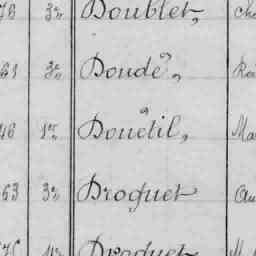 76 3e Doublet, Ch
61 3e Doudé,
46 1er Douétil, Ma
53 3e Droguet Au
Droguet